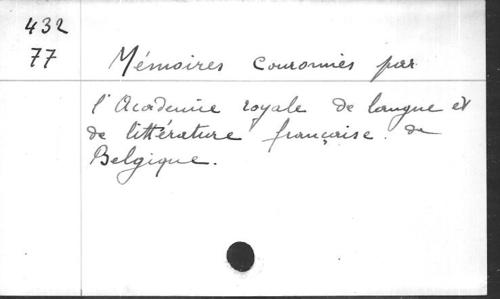 432
77
Mémoires couronnés par
l'Académie royale de langue et
de littérature française de
Belgique.